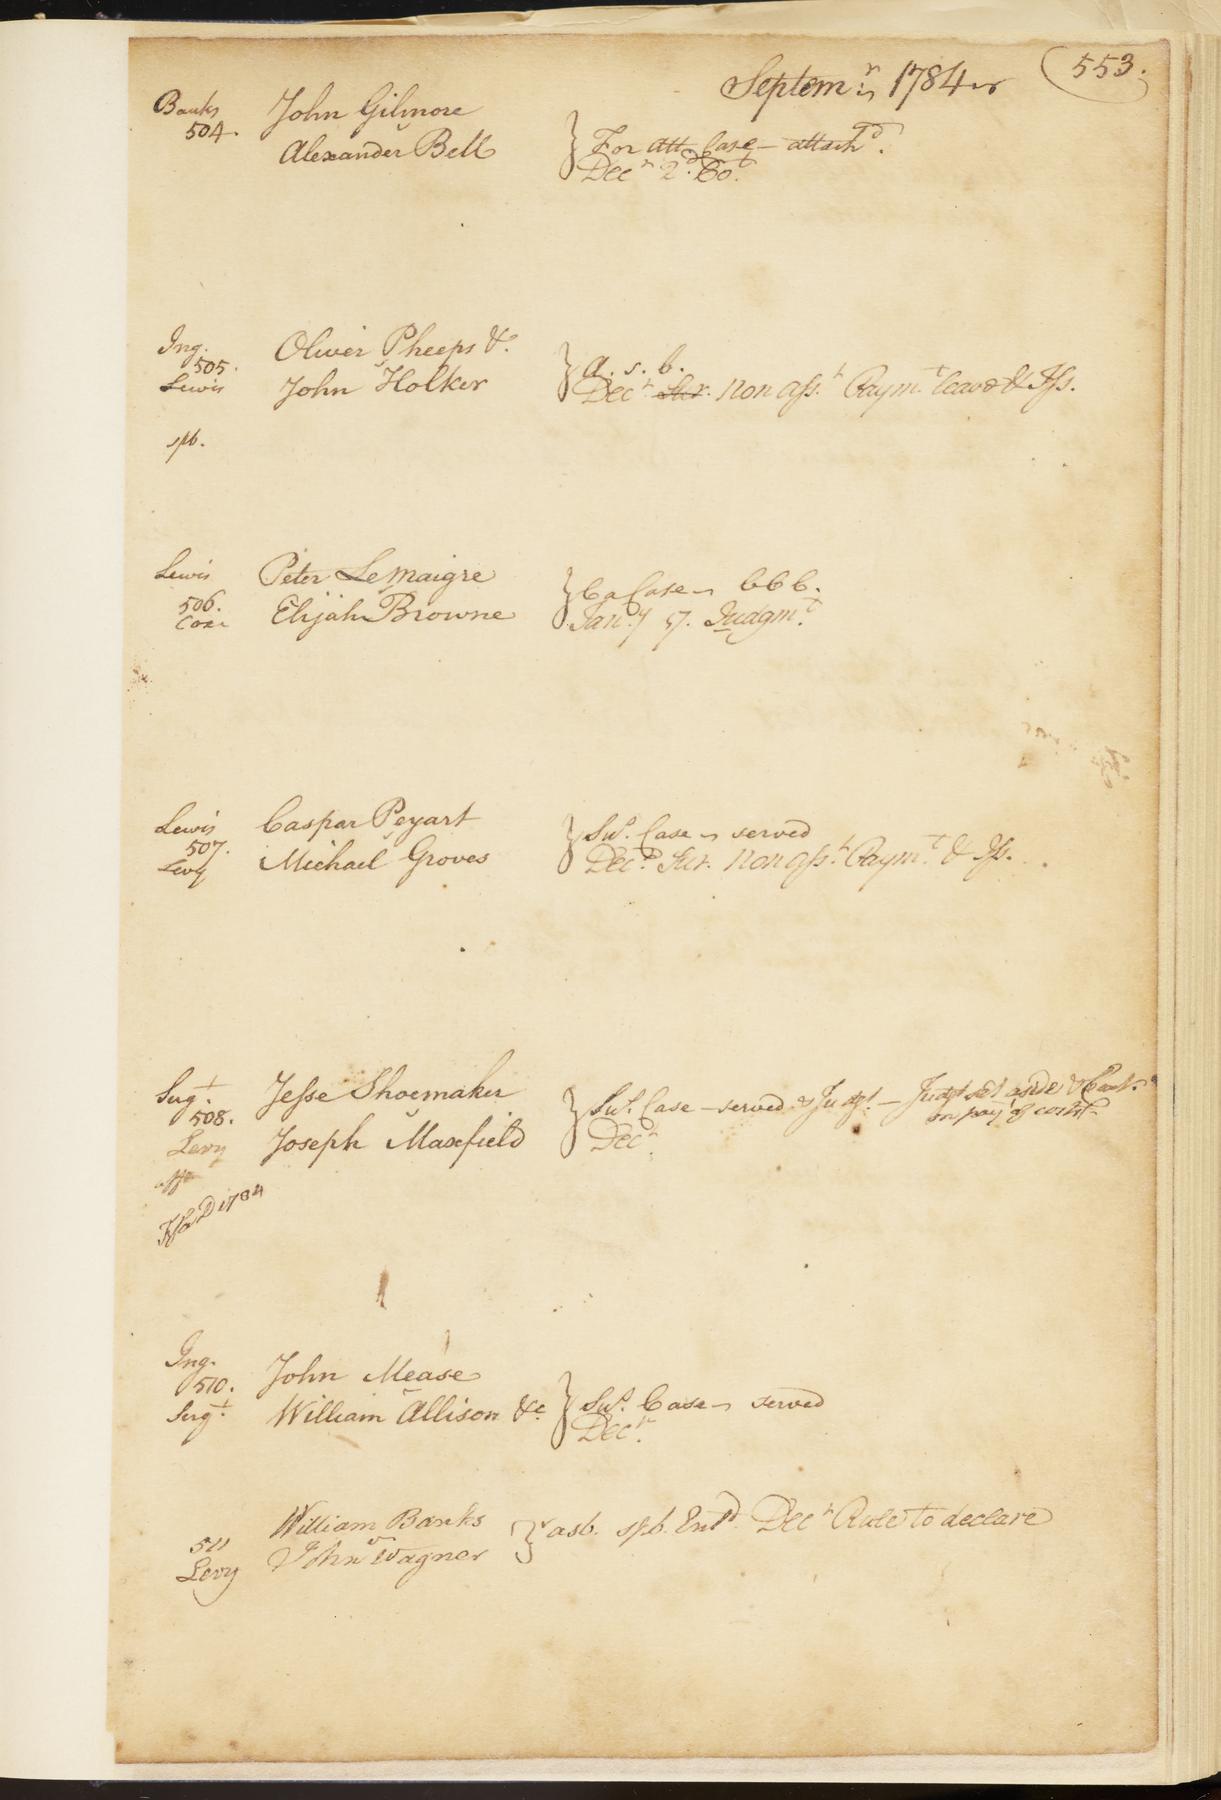 Septem:r 1784
553.
Banks
504.
John Gilmore
v
Alexander Bell
For att. Case - attach'd.
Decr 2d. Co't.
Ing.
505.
Lewis
spb.
Oliver Pheeps &.
v
John Holker
a. s. b.
Decr Nar. Non ass.t Paym.t leave & Iss.
Lewis
506.
Coxe
Peter LeMaigre
v
Elijah Browne
Ca Case bbb.
Jan.y 17. Judgm.t
Lewis
507.
Levy
Caspar Peyart
v
Michael Groves
Sus. Case served
Dec.r Nar. Non ass.t Paym.t & Iss.
Serg.t
508.
Levy
1784
Jesse Shoemaker
v
Joseph Maxfield
Sus. Case - served & Judgt. - Judgt set aside
on pay of costs
Decr.
Ing.
510.
Serg.t
John Mease
v
William Allison &c
Sus. Case served
Decr.
511
Levy
William Banks
v
John Wagner
asb. spb. Entd. Decr Rule to declare